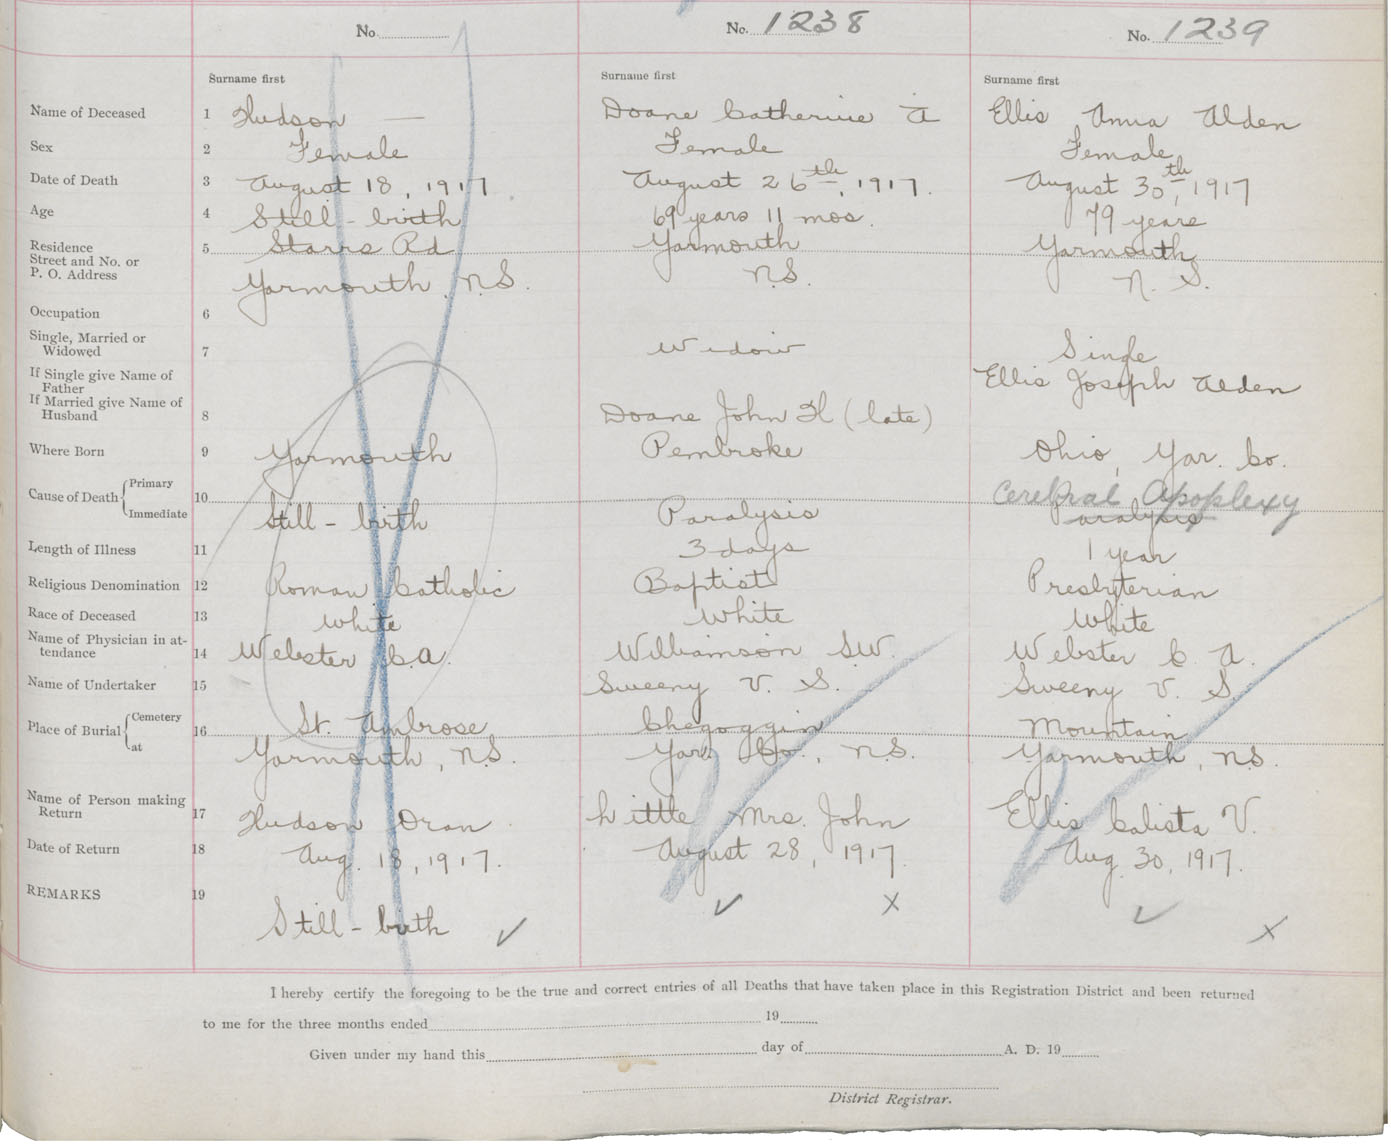 No. No. 1238 No. 1239
Surname first Surname first Surname first
Name of Deceased 1 Hudson — Doane Catherine A Ellis Anna Alden
Sex 2 Female Female Female
Date of Death 3 August 18, 1917 August 26th, 1917. August 30th, 1917
Age 4 Still-birth 69 years 11 mos. 79 years
Residence 5 Starrs Rd Yarmouth Yarmouth
Street and No. or
P. O. Address Yarmouth, N.S. N.S. N. S.
Occupation 6
Single, Married or
Widowed 7 Widow Single
If Single give Name of
Father Ellis Joseph Alden
If Married give Name of
Husband 8 Doane John H (late)
Where Born 9 Yarmouth Pembroke Ohio, Yar. Co.
Cause of Death { Primary 10 Cerebral Apoplexy
Immediate Still-birth Paralysis Paralysis
Length of Illness 11 3 days 1 year
Religious Denomination 12 Roman Catholic Baptist Presbyterian
Race of Deceased 13 White White White
Name of Physician in at-
tendance 14 Webster C.A. Williamson S.W. Webster C. A.
Name of Undertaker 15 Sweeny V. S. Sweeny V. S.
Place of Burial { Cemetery 16 St. Ambrose Chegoggin Mountain
at Yarmouth, N.S. Yar. Co., N.S. Yarmouth, N.S.
Name of Person making
Return 17 Hudson Oran Little Mrs. John Ellis Calista V.
Date of Return 18 Aug. 18, 1917. August 28, 1917. Aug. 30, 1917.
REMARKS 19
Still-birth ✓ ✓ x ✓ x
I hereby certify the foregoing to be the true and correct entries of all Deaths that have taken place in this Registration District and been returned
to me for the three months ended 19
Given under my hand this day of A. D. 19
District Registrar.